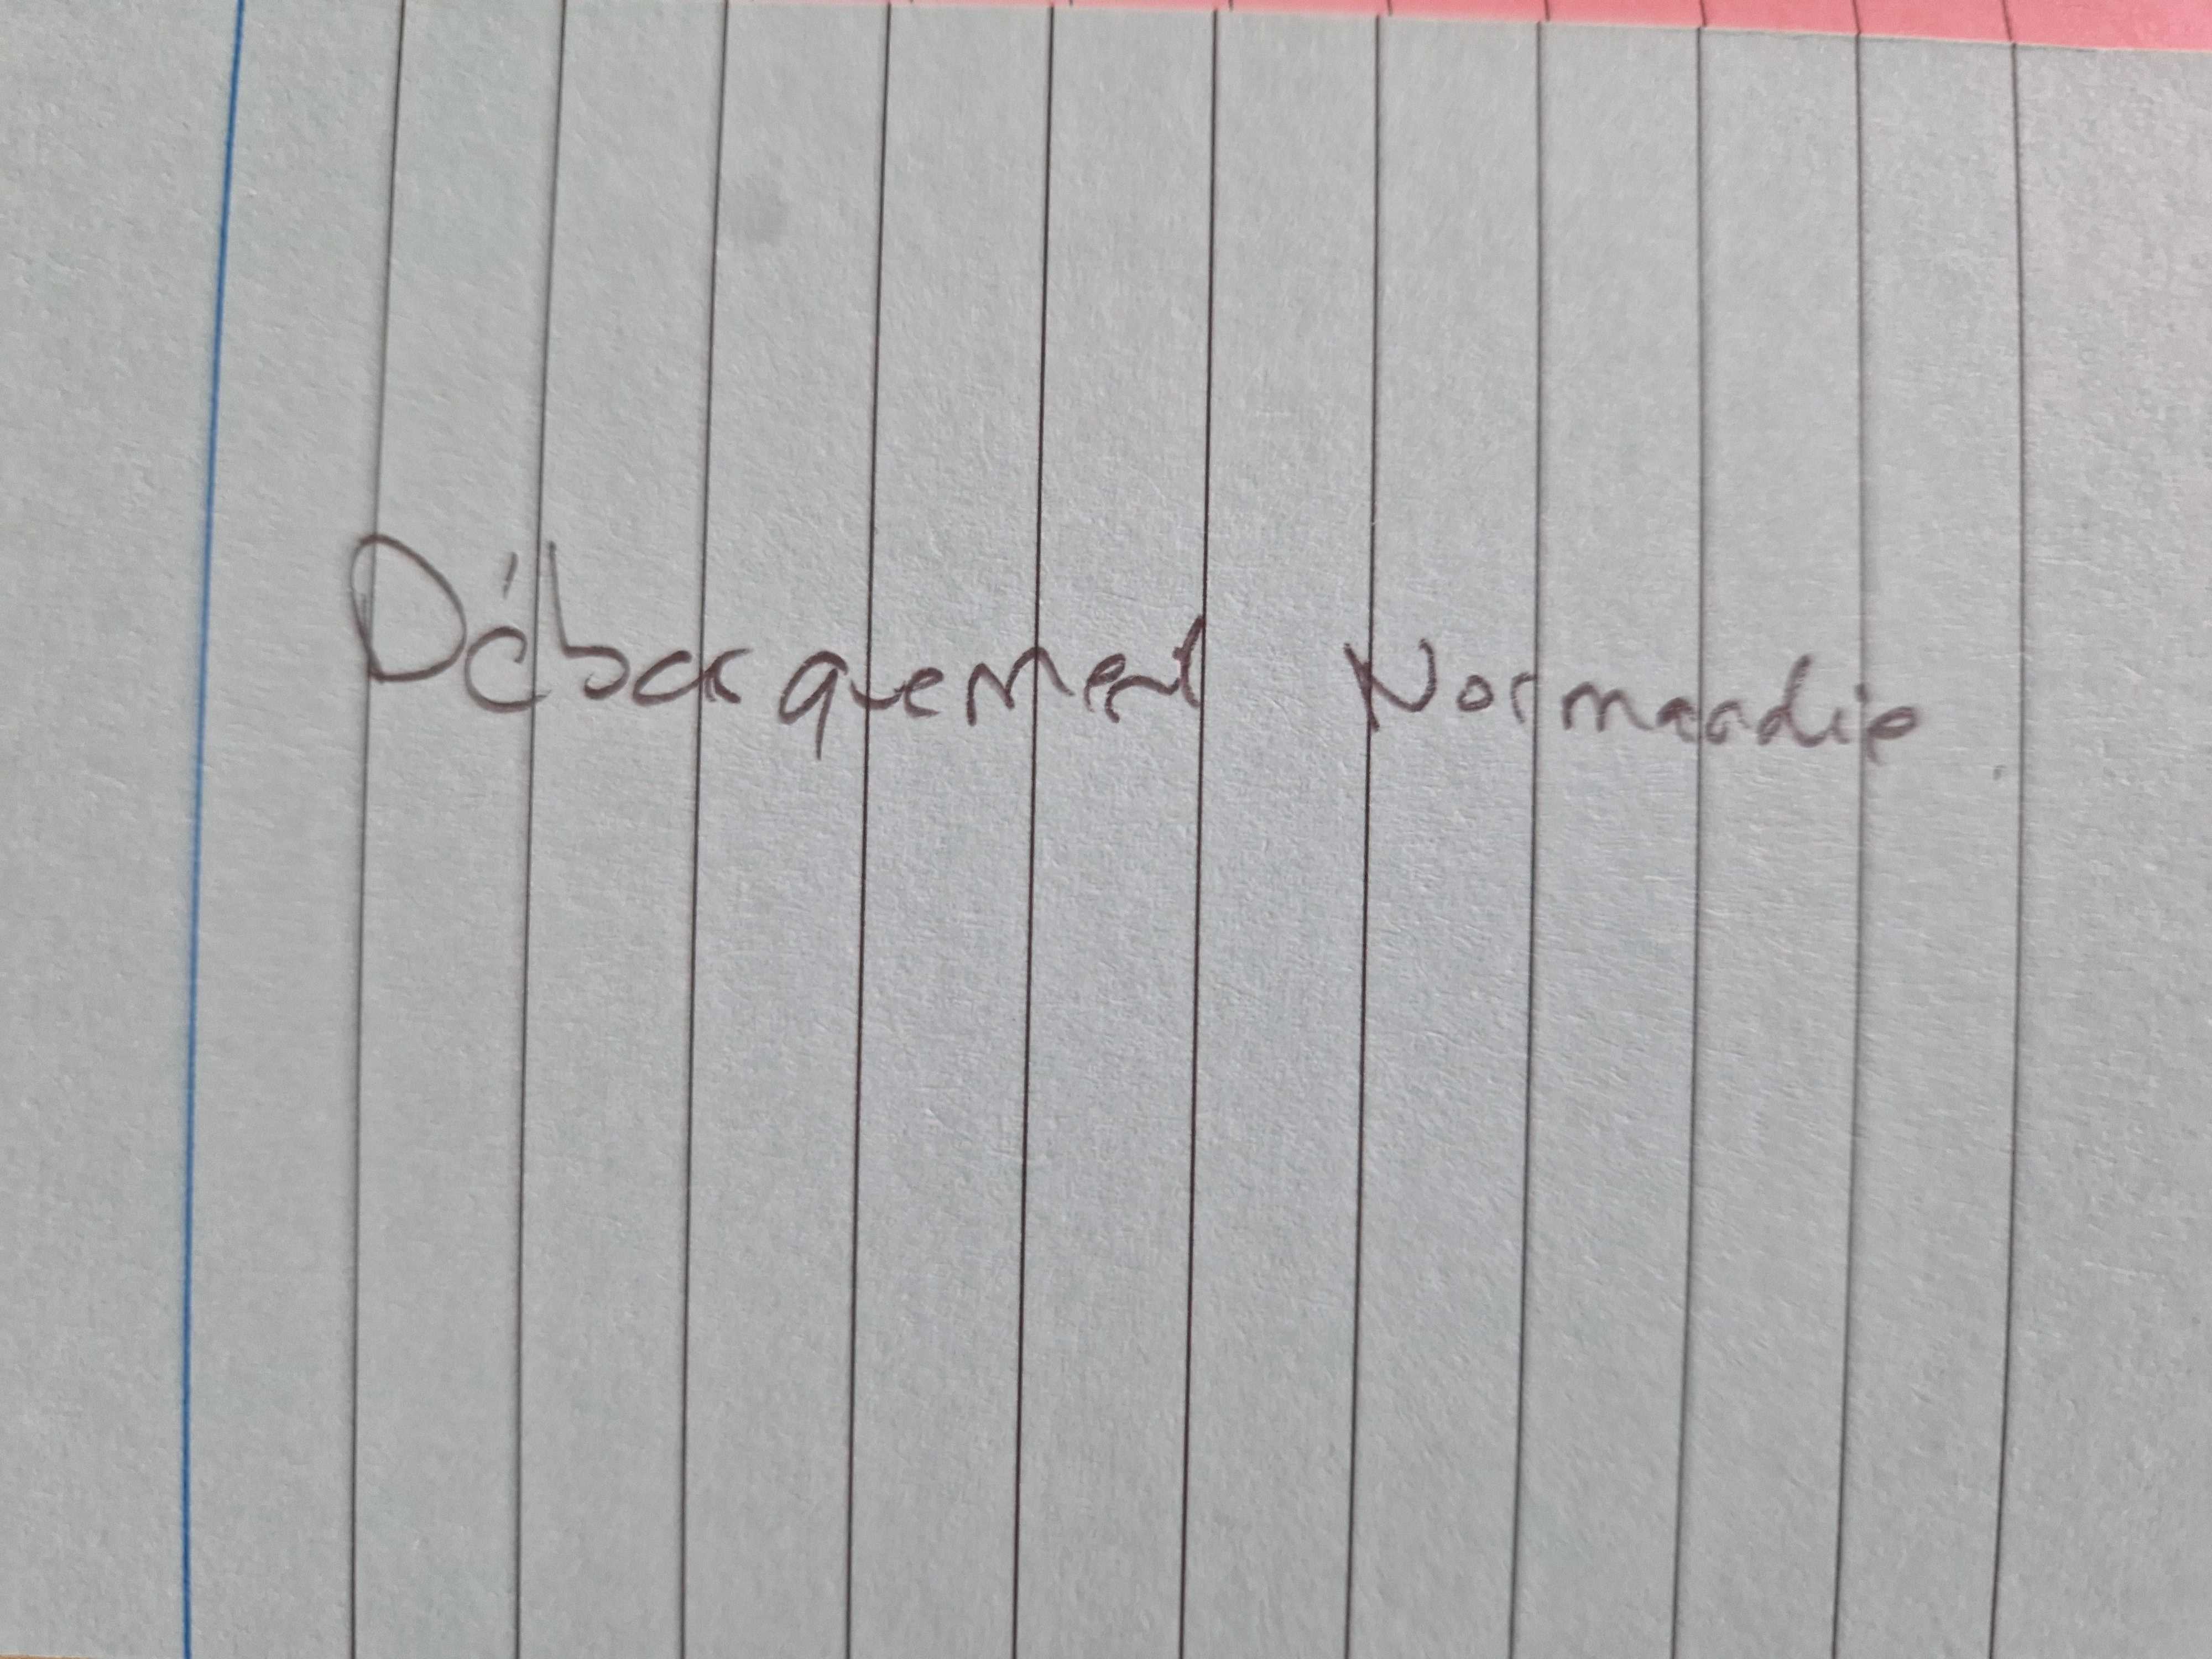 Débarquement Normandie